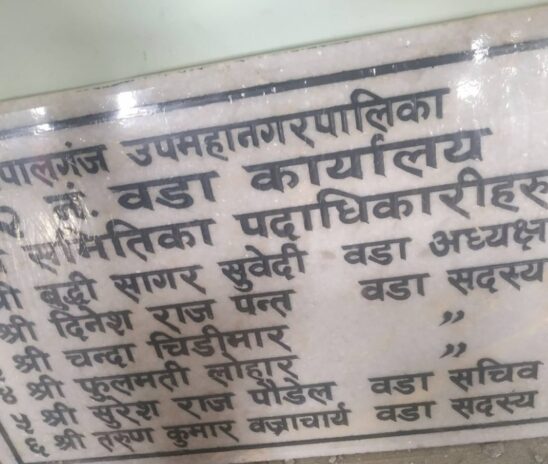 पालगंज उपमहानगरपालिका
नं. वडा कार्यालय
समितिका पदाधिकारीहरु
श्री बुद्धी सागर सुवेदी वडा अध्यक्ष
श्री दिनेश राज पन्त वडा सदस्य
श्री चन्दा चिडीमार ,,
४ श्री फुलमती लोहार ,,
५ श्री सुरेश राज पौडेल वडा सचिव
६ श्री तरुण कुमार वज्राचार्य वडा सदस्य